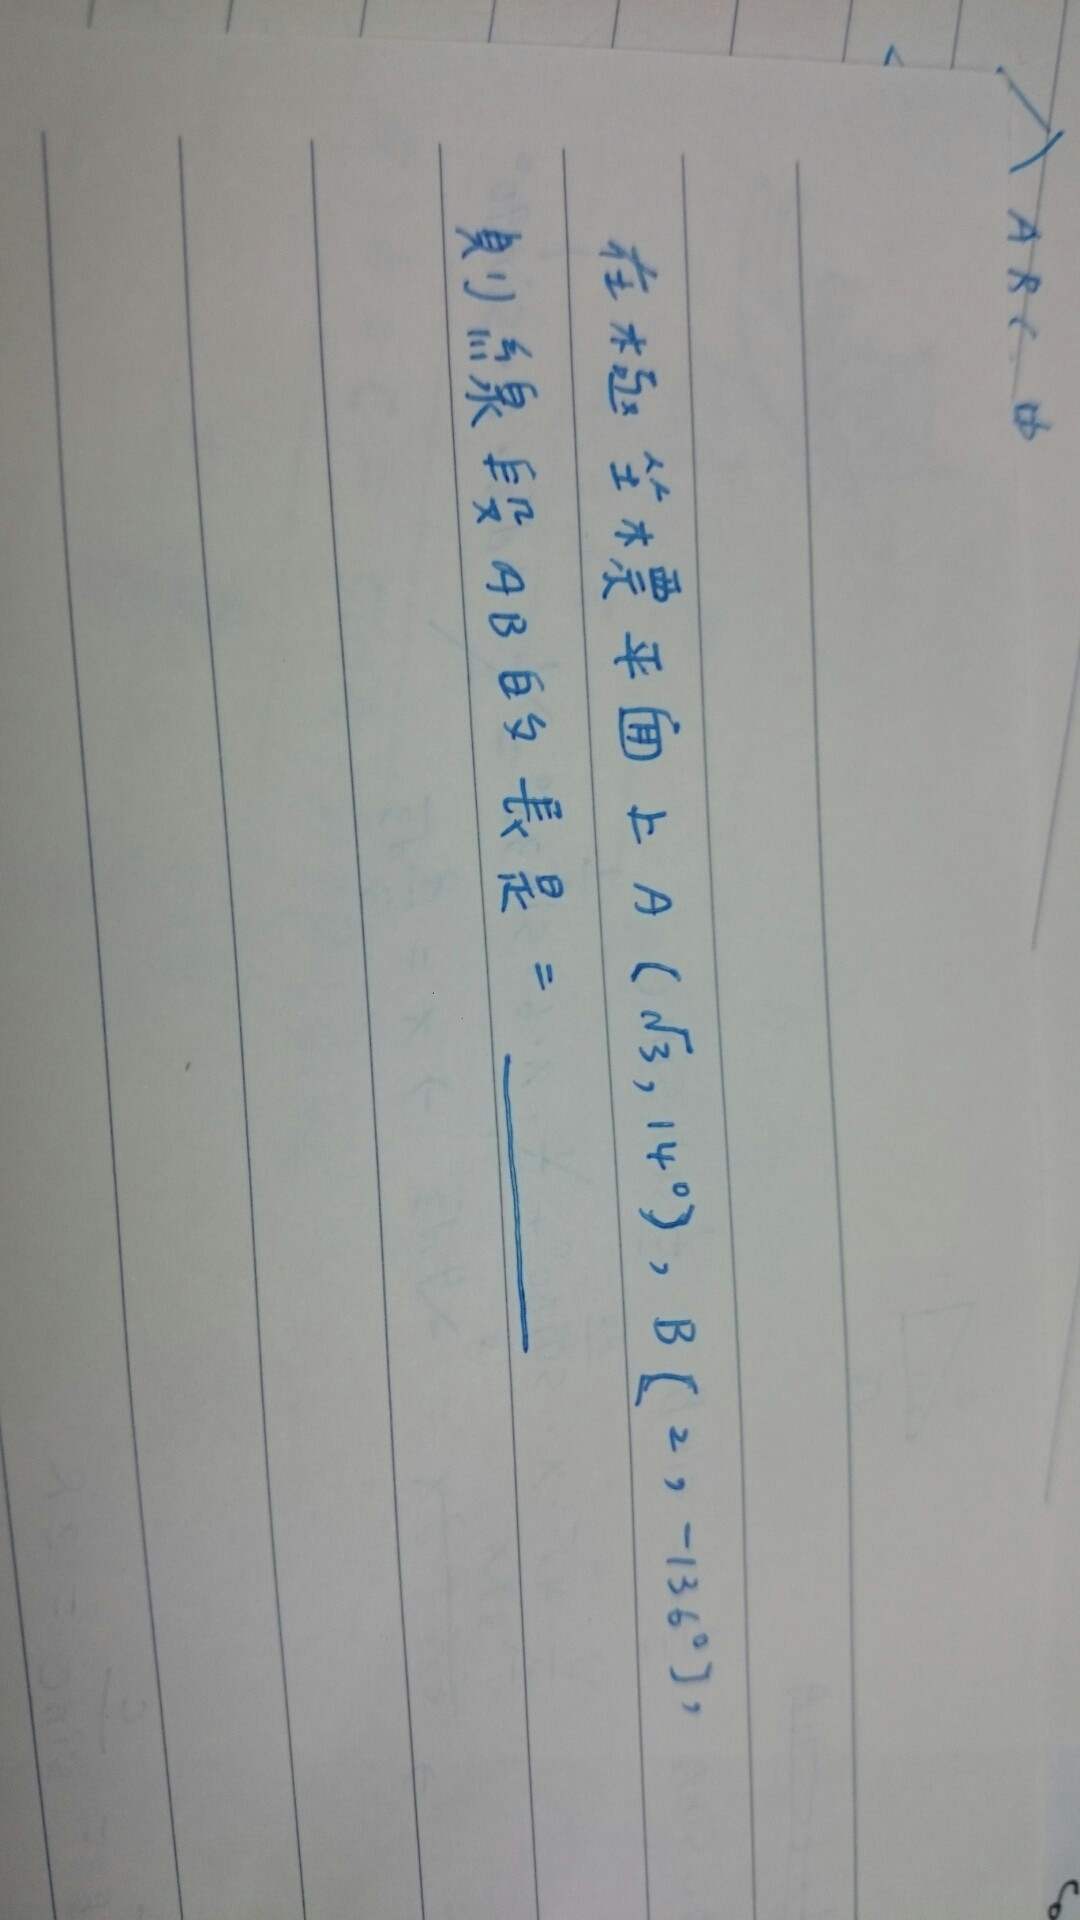 △ABC 中
在極坐標平面上 A(√3, 14°), B[2, -136°],
則線段AB的長是 =